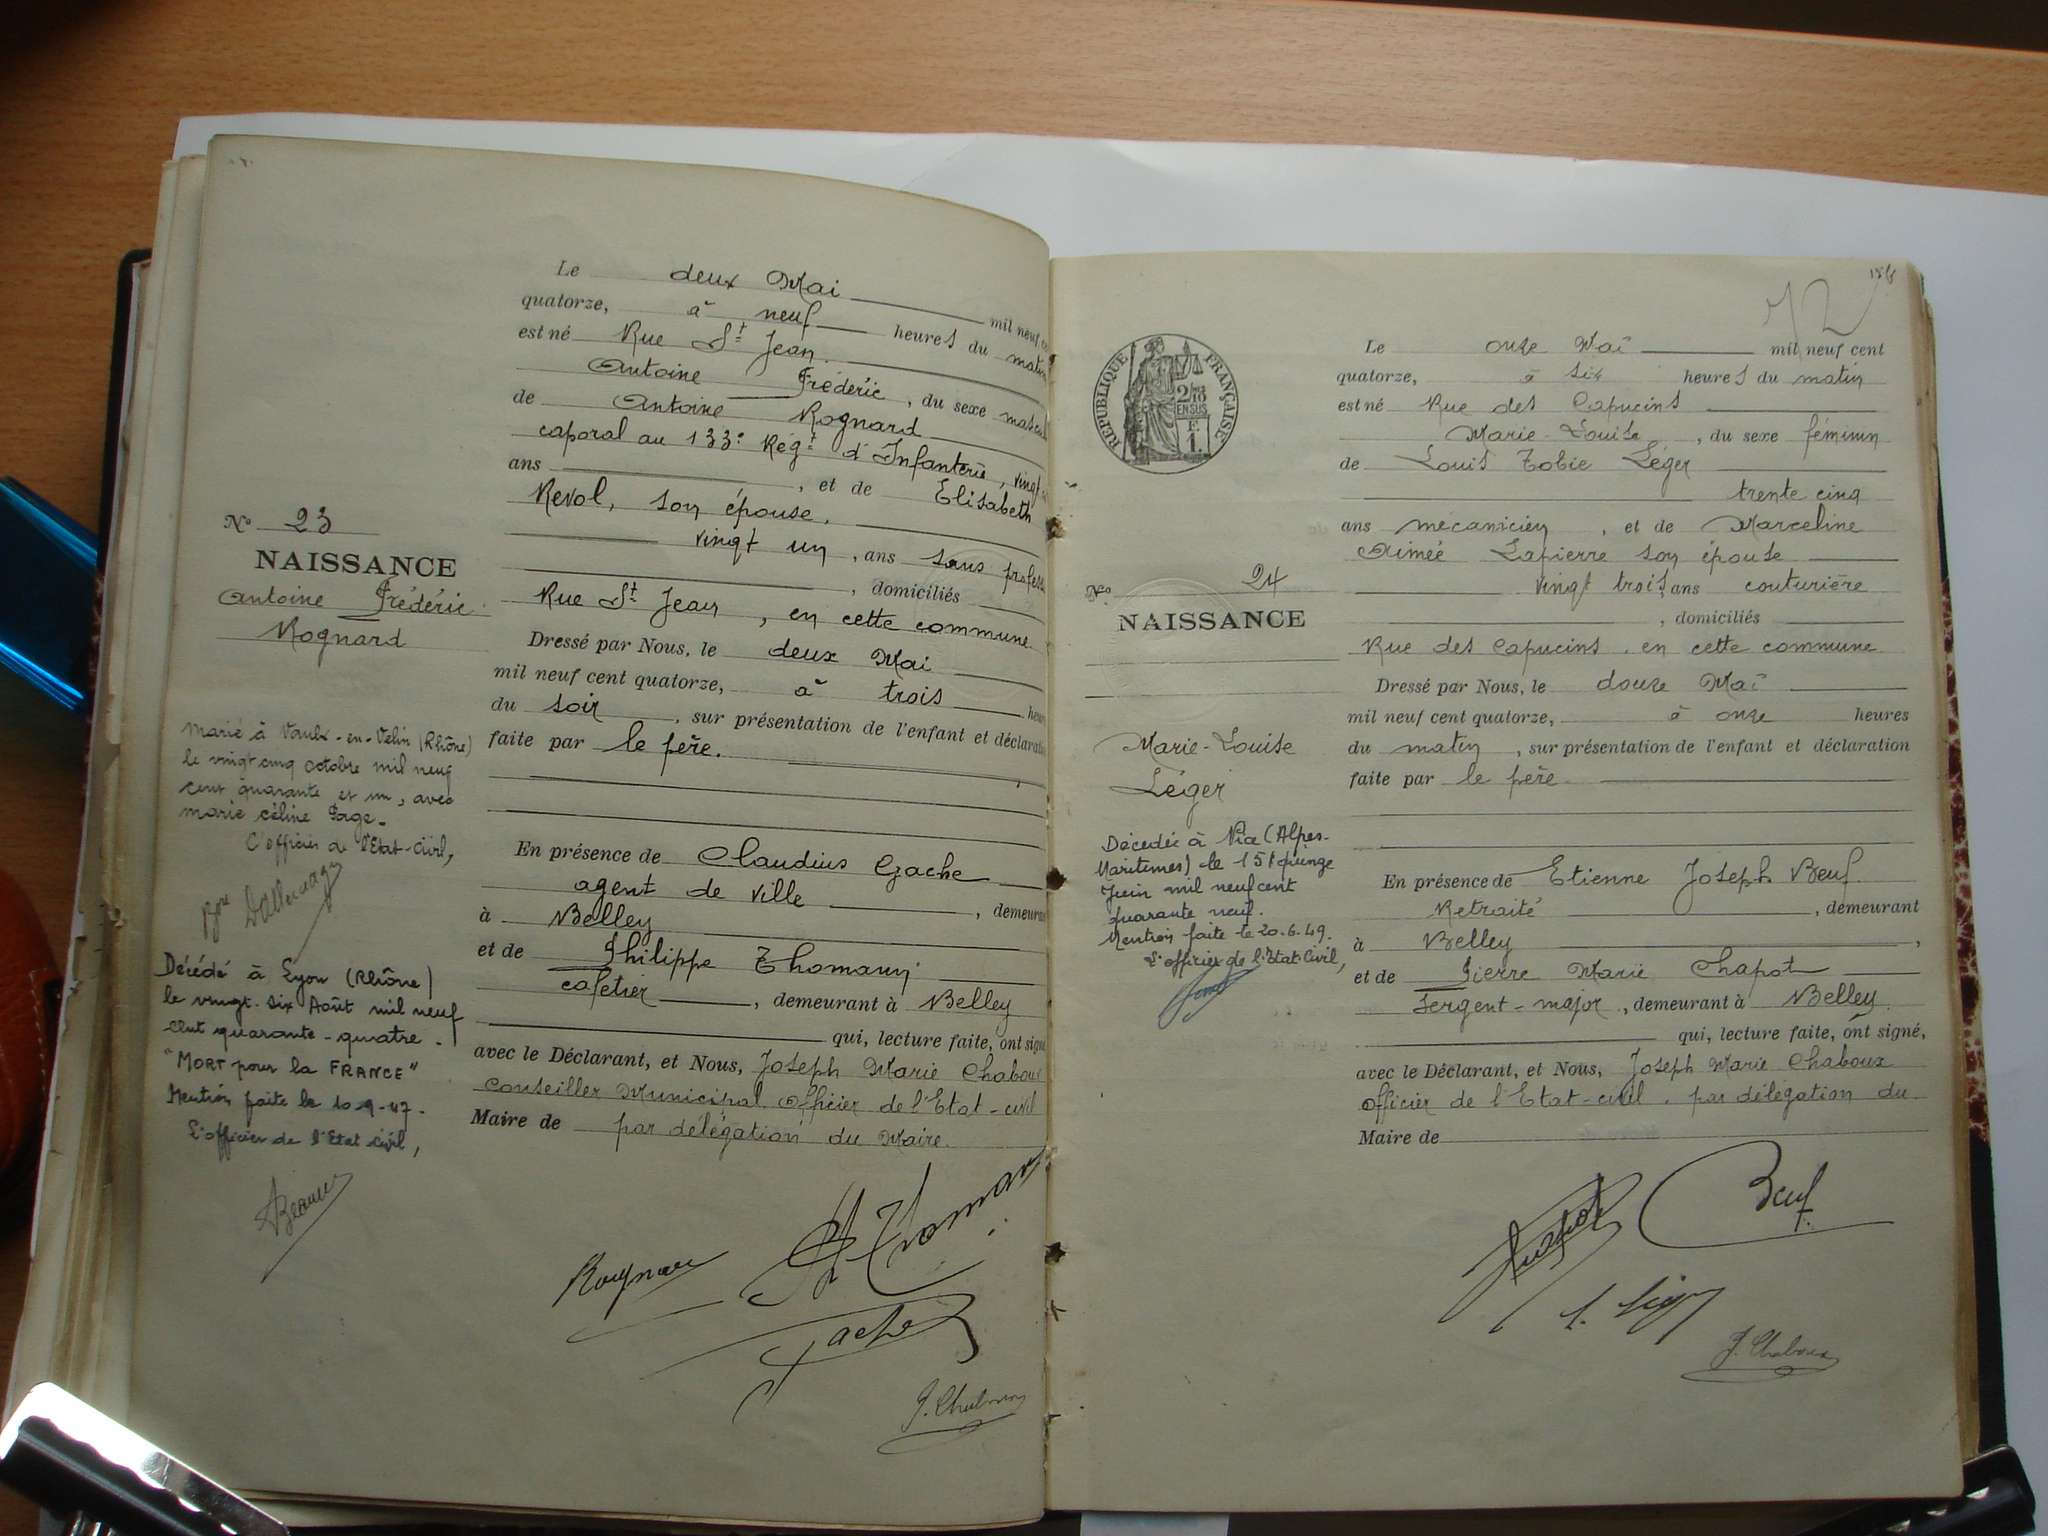 Le deux Mai mil neuf
quatorze, à neuf heures du matin
est né Rue St Jean.
Antoine Frédéric, du sexe
de Antoine Rognard
caporal au 133e Régt d'Infanterie, vingt
ans, et de Elisabeth
Revol, son épouse,
vingt un, ans sans
, domiciliés
Rue St Jean, en cette commune
Dressé par Nous, le deux Mai
mil neuf cent quatorze, à trois
du soir, sur présentation de l'enfant et
faite par le père.
En présence de Claudius Gache
agent de ville,
à Belley
et de Philippe Thomann
cafetier, demeurant à Belley
qui, lecture faite, ont signé
avec le Déclarant, et Nous, Joseph Marie Chaboux
Conseiller Municipal officier de l'Etat-civil
Maire de par délégation du Maire.
Rognard
Gache
J. Chaboux
No 23
NAISSANCE
Antoine Frédéric
Rognard
Marié à Vaulx-en-Velin (Rhône)
le vingt cinq octobre mil neuf
cent quarante et un, avec
marie céline Page.
L'officier de l'Etat-Civil,
Décédé à Lyon (Rhône)
le vingt-six Août mil neuf
cent quarante-quatre.
"MORT pour la FRANCE"
Mention faite le 10-9-47.
L'officier de l'Etat Civil,
REPUBLIQUE FRANÇAISE
2/10
EN SUS
F.
1.
Le onze Mai mil neuf cent
quatorze, à six heures du matin
est né Rue des Capucins
Marie-Louise, du sexe féminin
de Louis Tobie Léger
trente cinq
ans mécanicien, et de Marceline
Aimée Lapierre son épouse
vingt trois, ans couturière
, domiciliés
Rue des Capucins, en cette commune
Dressé par Nous, le douze Mai
mil neuf cent quatorze, à onze heures
du matin, sur présentation de l'enfant et déclaration
faite par le père.
En présence de Etienne Joseph Beuf
Retraité, demeurant
à Belley,
et de Pierre Marie Chapot
Sergent-major, demeurant à Belley
qui, lecture faite, ont signé,
avec le Déclarant, et Nous, Joseph Marie Chaboux
officier de l'Etat-civil, par délégation du
Maire de
Beuf
L. Léger
J. Chaboux
No 24
NAISSANCE
Marie-Louise
Léger
Décédée à Nice (Alpes-
Maritimes) le 15/quinze
Juin mil neuf cent
quarante neuf.
Mention faite le 20.6.49.
L'officier de l'Etat-Civil,